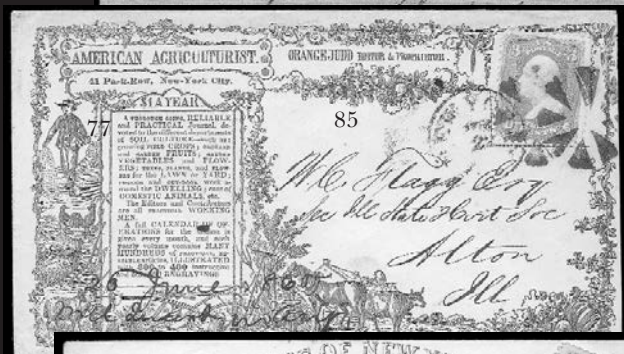 AMERICAN AGRICULTURIST.
ORANGE JUDD EDITOR & PROPRIETOR.
41 Park-Row, New-York City.
$1 A YEAR
77
85
A THOROUGH GOING, RELIABLE
and PRACTICAL Journal, de-
voted to the different departments
of SOIL CULTURE—such as
growing FIELD CROPS; orchard
and garden FRUITS; garden
VEGETABLES and FLOW-
ERS; trees, plants, and flow-
ers for the LAWN or YARD;
in-door and out-door work
around the DWELLING; care of
DOMESTIC ANIMALS, etc.
The Editors and Contributors
are all practical WORKING
MEN.
A full CALENDAR OF OP-
ERATIONS for the season is
given every month, and each
yearly volume contains MANY
HUNDREDS of
ILLUSTRATED
with 300 to 400 instructive
ENGRAVINGS
W. C. Flagg Esq
Sec Ill State Hort Soc
Alton
Ill
June
OF NEW